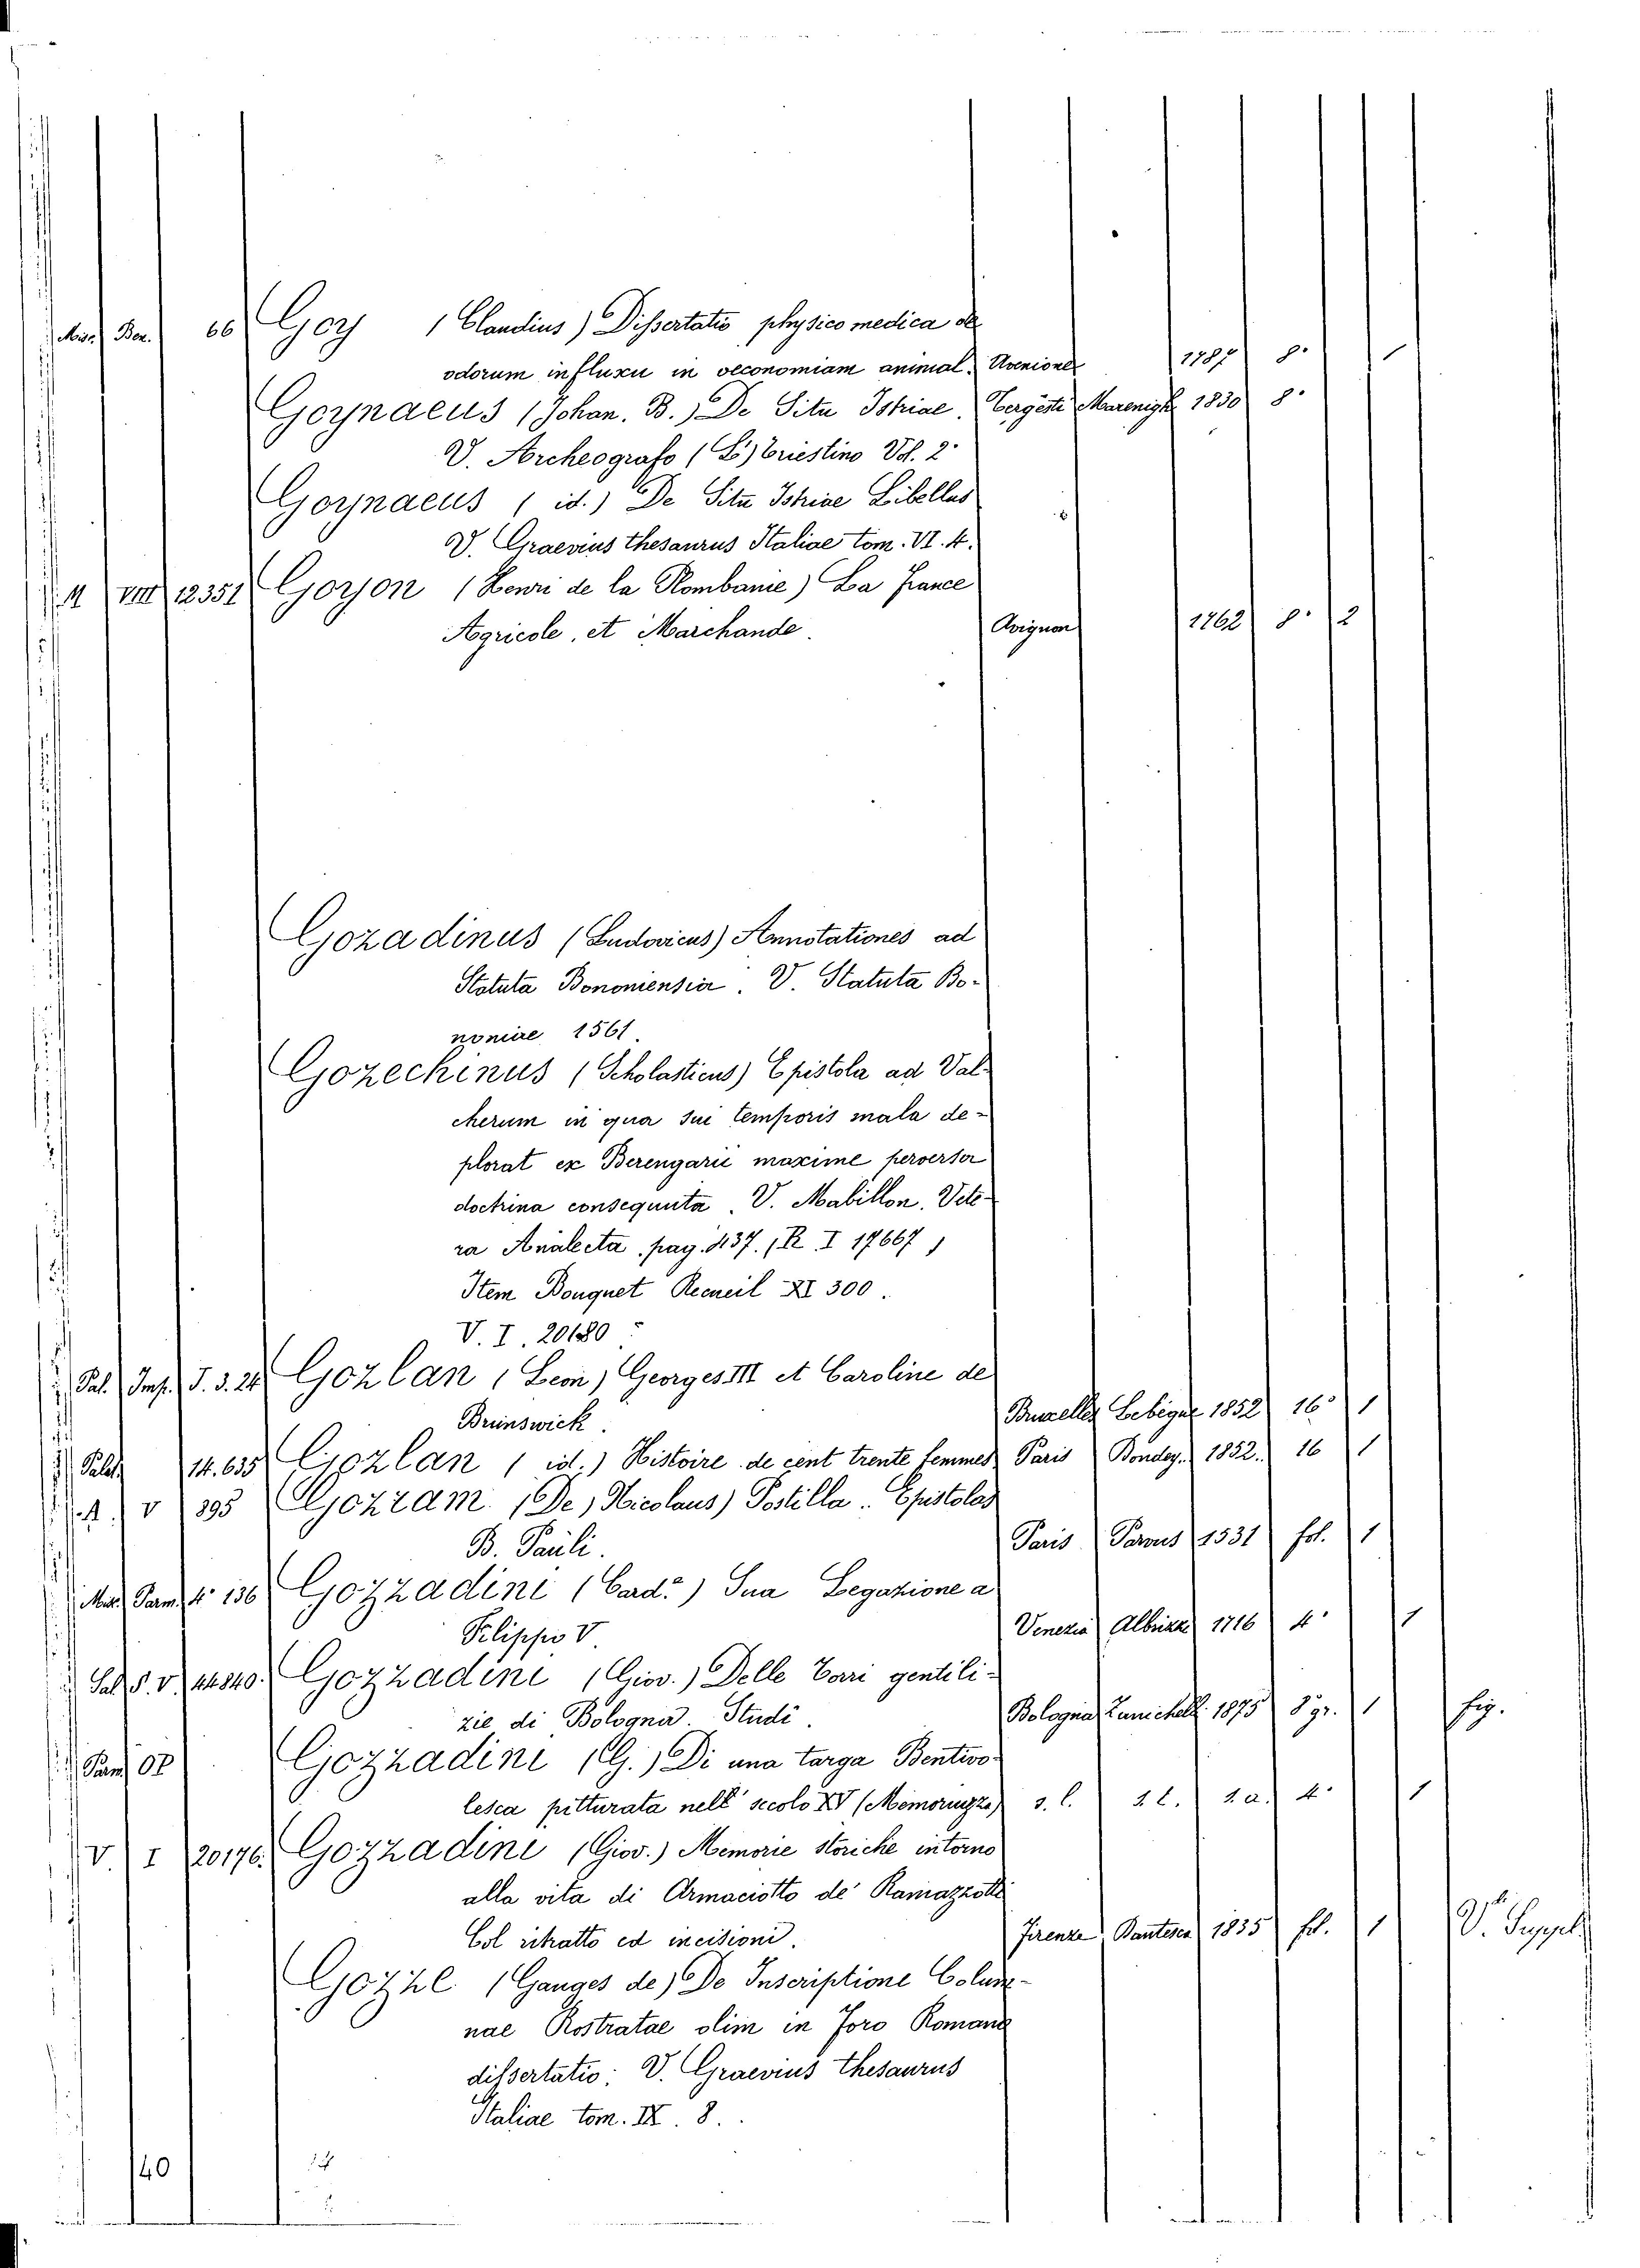 Misc. Ber. 66 Goy (Claudius) Dissertatio physico medica de
odorum influxu in oeconomiam animal. Avenione 1787 8° 1
Goynaeus (Johan. B.) De Situ Istriae. Tergeste Marenigh 1830 8°
V. Archeografo (L') Triestino Vol. 2°
Goynaeus (id.) De Situ Istriae Libellus
V. Graevius thesaurus Italiae tom. VI. 4.
M VIII 12351 Goyon (Henri de la Plombanie) La France
Agricole, et Marchande. Avignon 1762 8° 2
Gozadinus (Ludovicus) Annotationes ad
Statuta Bononiensia. V. Statuta Bo-
noniae 1561.
Gozechinus (Scholasticus) Epistola ad Val-
cherum in qua sui temporis mala de-
plorat ex Berengarii maxime perversa
doctrina consequuta. V. Mabillon. Vete-
ra Analecta. pag. 437. (R. I 17667)
Item Bouquet Recueil XI 300.
V. I. 20180
Pal. Imp. T. 3. 24 Gozlan (Leon) Georges III et Caroline de
Brunswick. Bruxelles Lebègue 1852 16° 1
Palat. 14.635 Gozlan (id.) Histoire de cent trente femmes Paris Bondey. 1852. 16 1
A. V 895 Gozzam (De) Nicolaus) Postilla.. Epistolas
B. Pauli. Paris Parvus 1531 fol. 1
Misc. Parm. 4° 136 Gozzadini (Card.e) Sua Legazione a
Filippo V. Venezia Albrizzi 1716 4° 1
Sal. S. V. 44840. Gozzadini (Giov.) Delle Torri gentili-
zie di Bologna. Studi. Bologna Zanichell. 1875 8° gr. 1 fig.
Parm. 08 Gozzadini (G.) Di una targa Bentivo-
lesca pitturata nell' secolo XV (Memoriuzza) s. l. s. t. s. a. 4° 1
V I 20176. Gozzadini (Giov.) Memorie storiche intorno
alla vita di Armaciotto de' Ramazzotti
Col ritratto ed incisioni. Firenze 1835 fol. 1 V. Suppl.
Gozze (Ganges de) De Inscriptione Colum-
nae Rostratae olim in Foro Romano
dissertatio: V. Graevius thesaurus
Italiae tom. IX. 8.
140